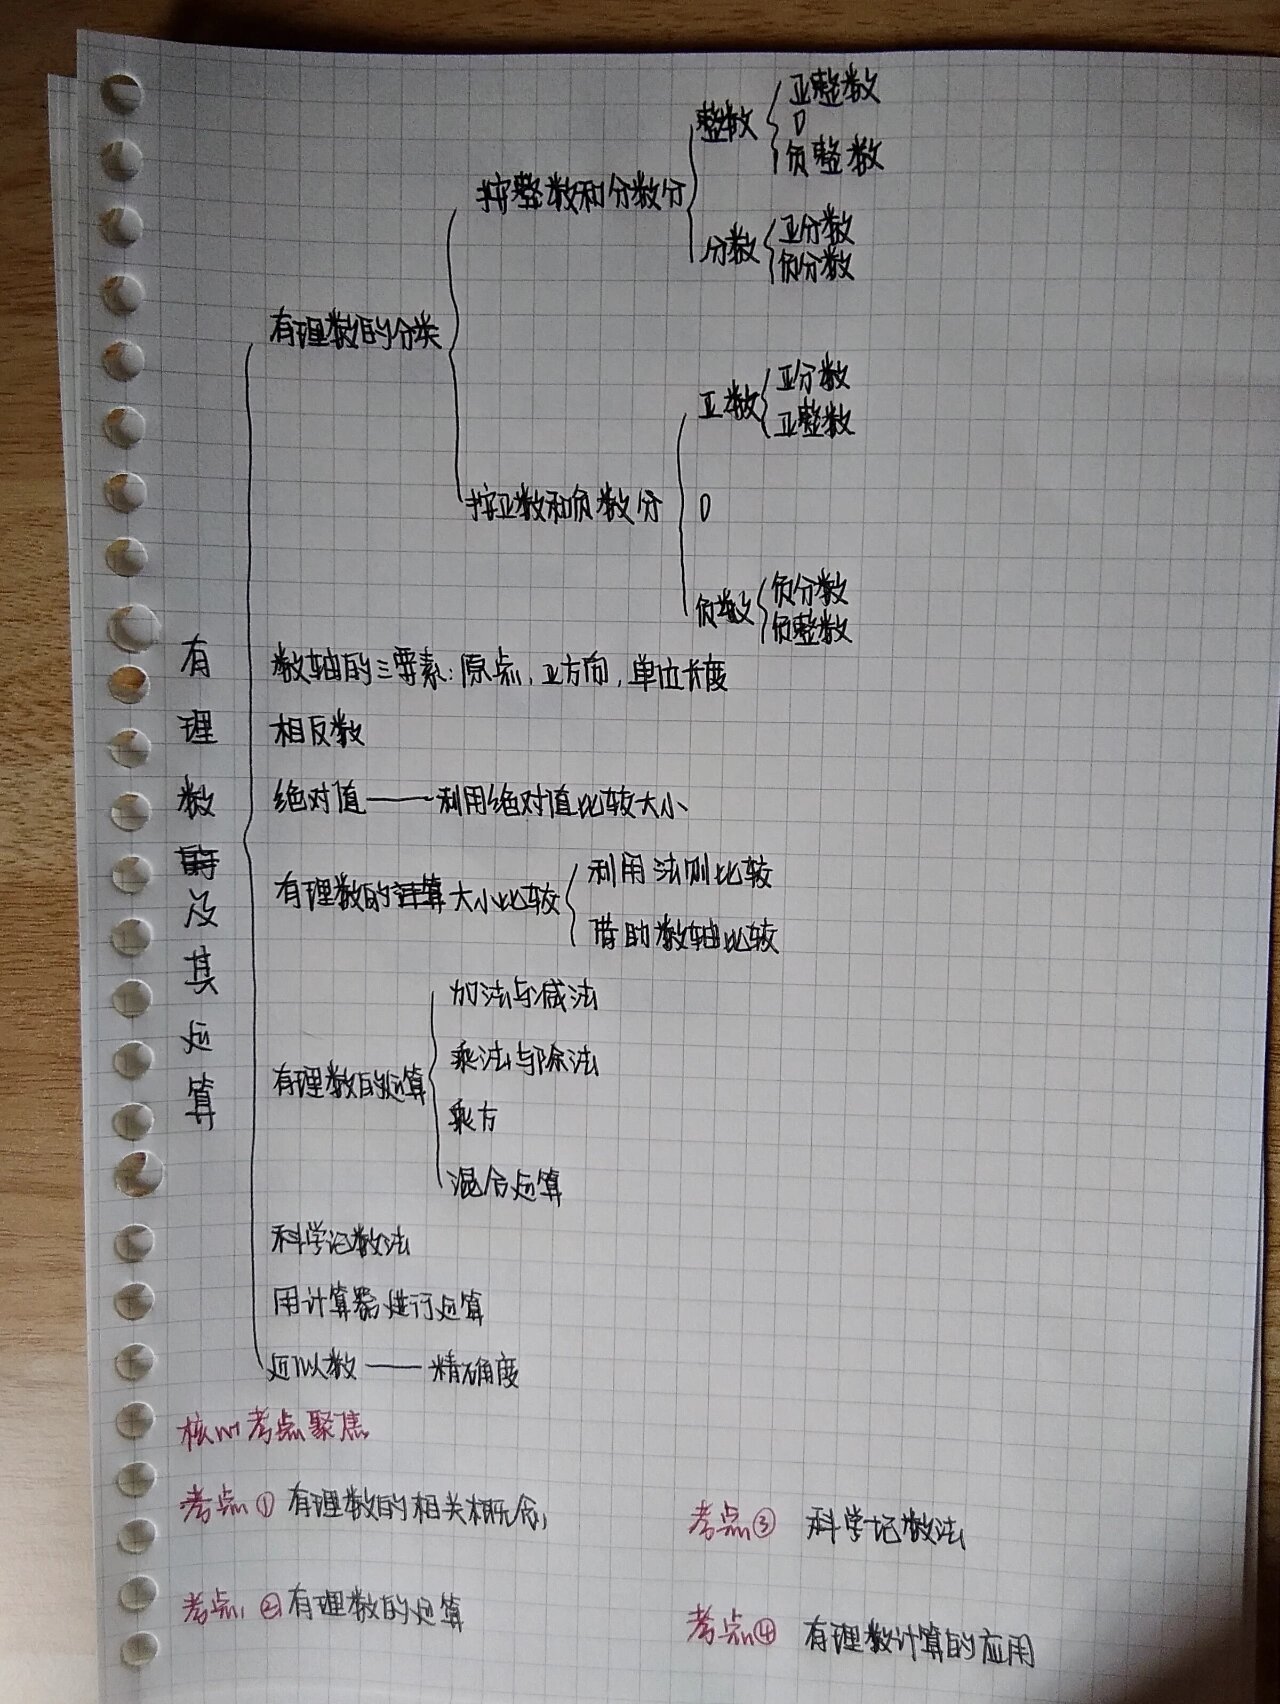 有理数及其运算
有理数的分类
按整数和分数分
整数
正整数
0
负整数
分数
正分数
负分数
按正数和负数分
正数
正分数
正整数
0
负数
负分数
负整数
数轴的三要素:原点,正方向,单位长度
相反数
绝对值——利用绝对值比较大小
有理数的大小比较
利用法则比较
借助数轴比较
有理数的运算
加法与减法
乘法与除法
乘方
混合运算
科学记数法
用计算器进行运算
近似数——精确度
核心考点聚焦
考点① 有理数的相关概念
考点② 有理数的运算
考点③ 科学记数法
考点④ 有理数计算的应用